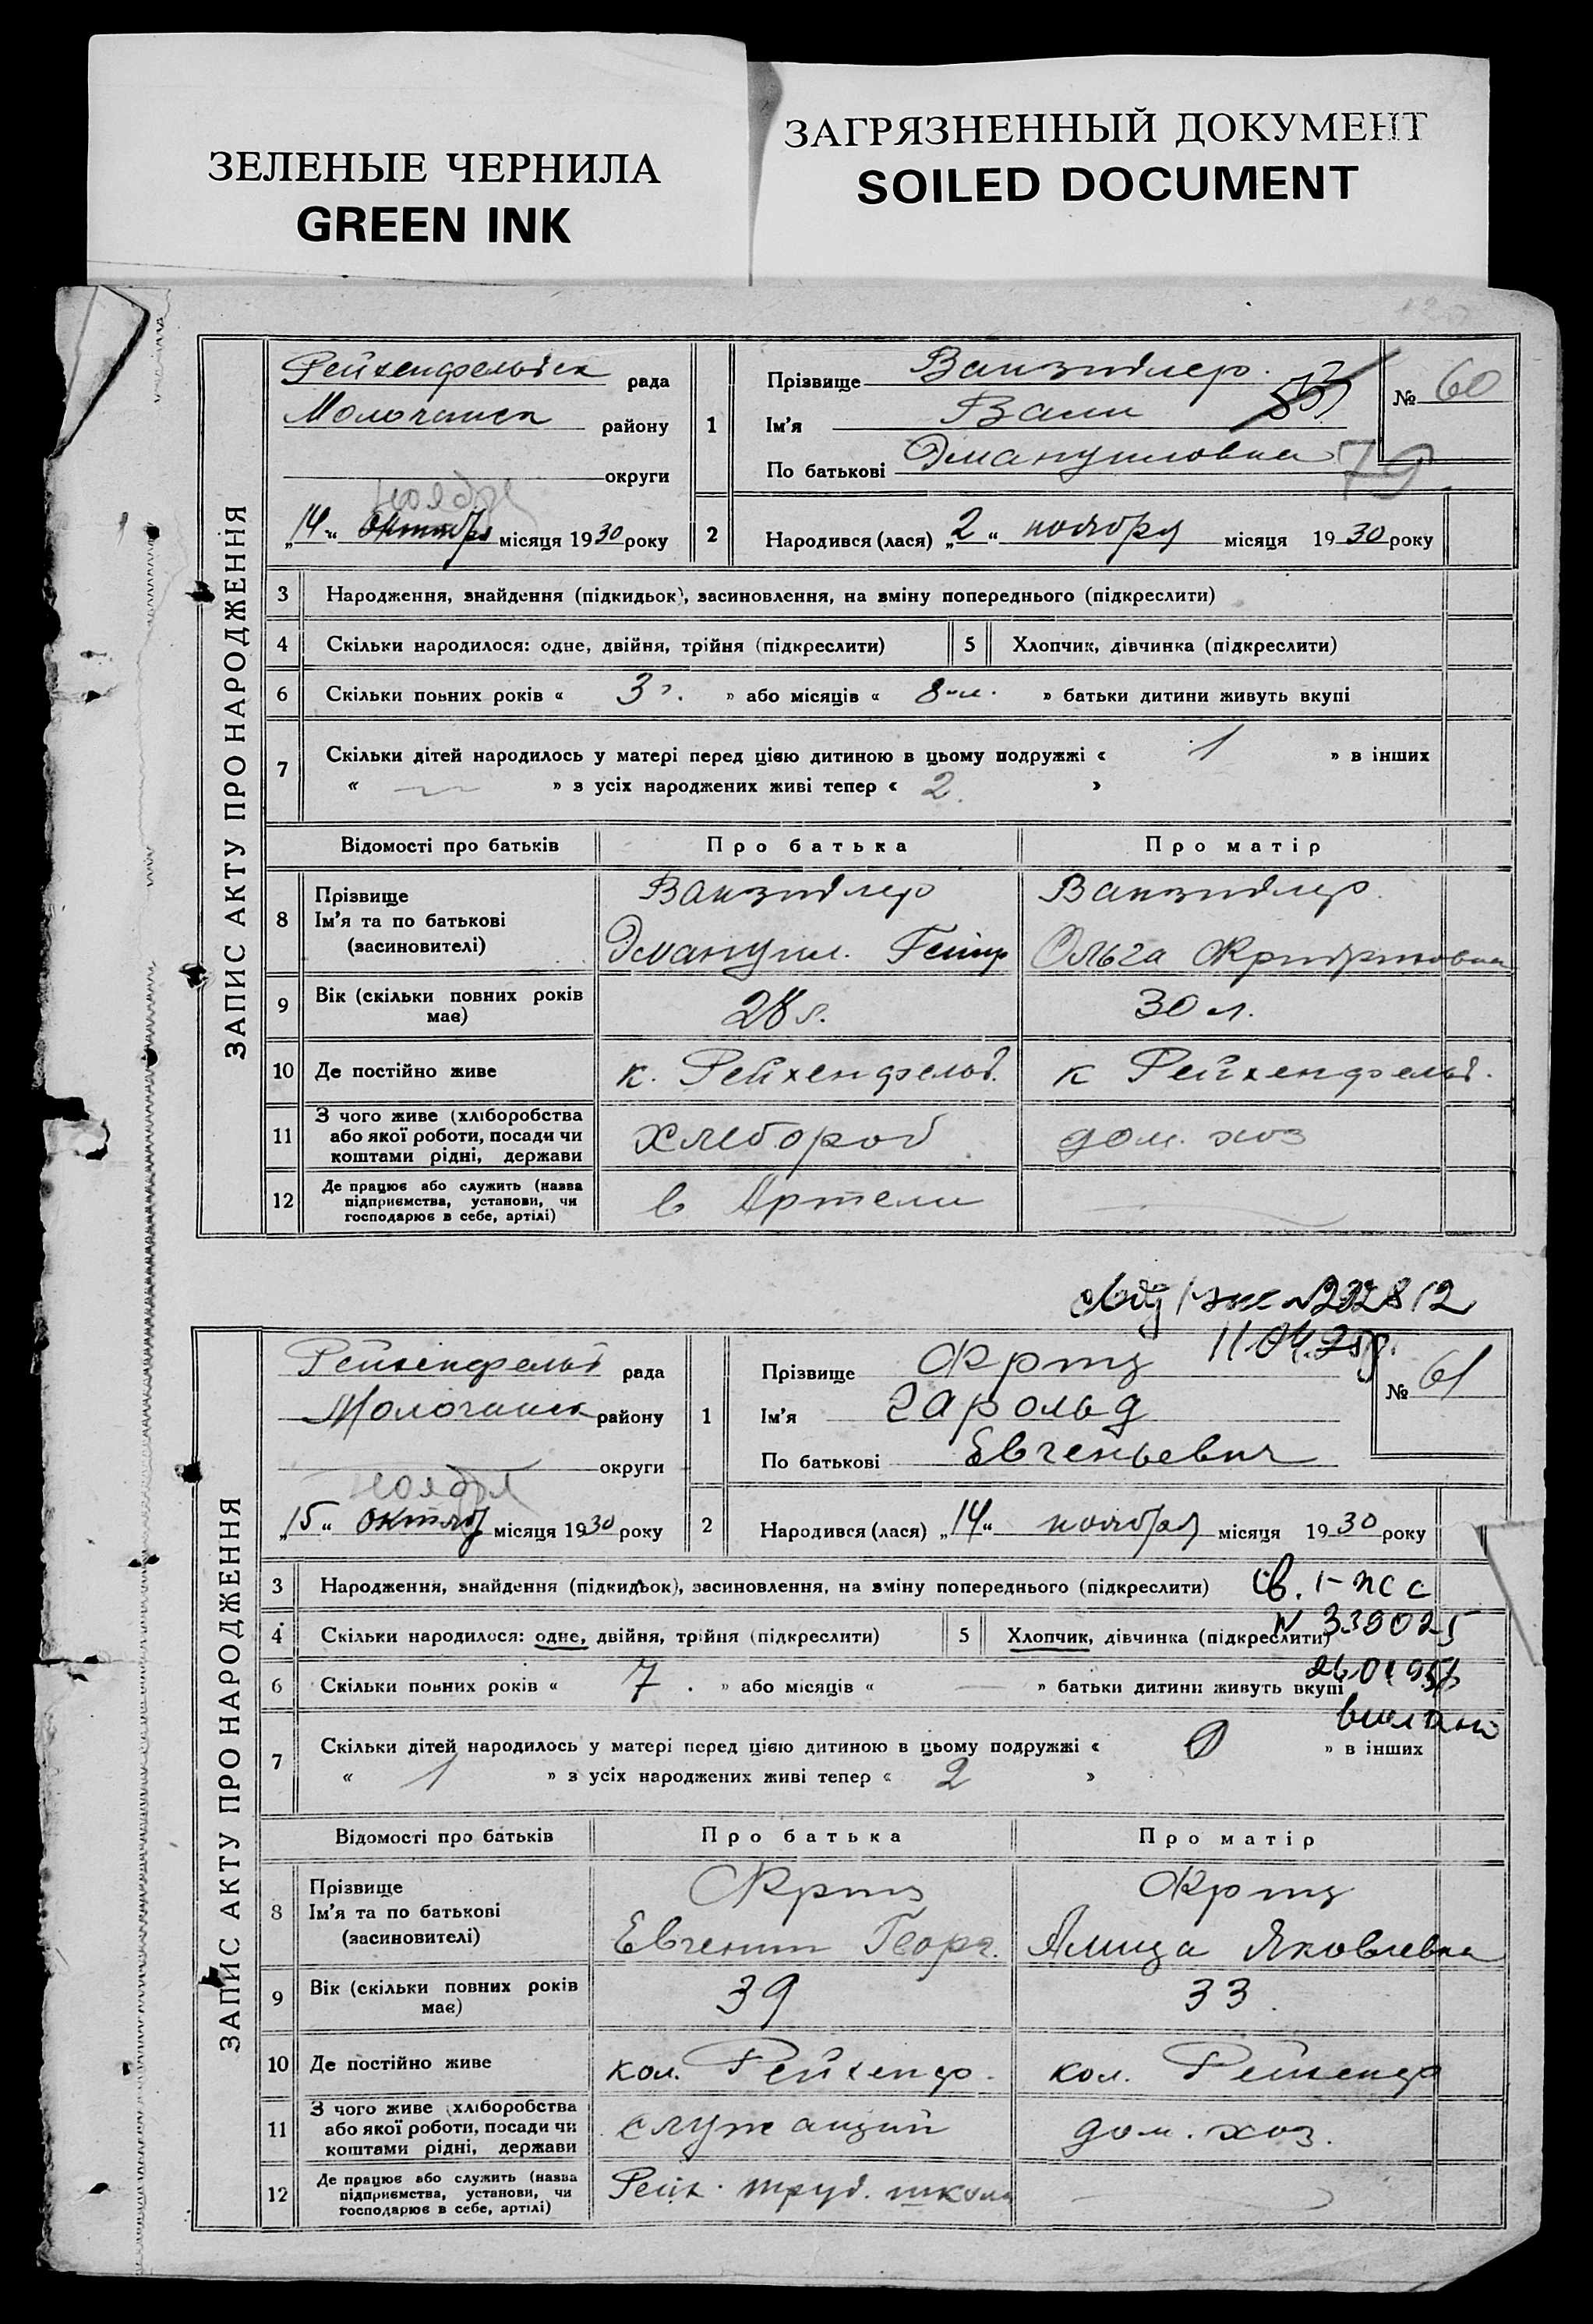 ЗЕЛЕНЫЕ ЧЕРНИЛА
GREEN INK
ЗАГРЯЗНЕННЫЙ ДОКУМЕНТ
SOILED DOCUMENT
ЗАПИС АКТУ ПРО НАРОДЖЕННЯ
Рейхенфельдск рада
Молочанск району
округи
ноября
„14“ октября місяця 1930 року
1
Прізвище Ванзидлер.
Ім'я Вали
По батькові Эмануиловна
№ 60
79
2 Народився (лася) „2“ ноября місяця 1930 року
3 Народження, знайдення (підкидьок), засиновлення, на зміну попереднього (підкреслити)
4 Скільки народилося: одне, двійня, трійня (підкреслити) 5 Хлопчик, дівчинка (підкреслити)
6 Скільки повних років « 3 г. » або місяців « 8 м. » батьки дитини живуть вкупі
7 Скільки дітей народилось у матері перед цією дитиною в цьому подружжі « 1 » в інших
« — » з усіх народжених живі тепер « 2. »
Відомості про батьків Про батька Про матір
8 Прізвище
Ім'я та по батькові
(засиновителі)
Ванзидлер
Эмануил.
Ванзидлер.
Ольга
9 Вік (скільки повних років має) 28 л. 30 л.
10 Де постійно живе к. Рейхенфельд. к Рейхенфельд.
11 З чого живе (хліборобства
або якої роботи, посади чи
коштами рідні, держави
хлебороб дом. хоз
12 Де працює або служить (назва
підприємства, установи, чи
господарює в себе, артілі)
в Артели —
№ 232812
ЗАПИС АКТУ ПРО НАРОДЖЕННЯ
Рейхенфельд рада
Молочанск району
округи
ноября
„15“ октяб місяця 1930 року
1
Прізвище
Ім'я Гарольд
По батькові Евгеньевич
№ 61
2 Народився (лася) „14“ ноября місяця 1930 року
3 Народження, знайдення (підкидьок), засиновлення, на зміну попереднього (підкреслити)
Св. 1-ПС С
№ 339025
4 Скільки народилося: одне, двійня, трійня (підкреслити) 5 Хлопчик, дівчинка (підкреслити)
6 Скільки повних років « 7. » або місяців « — » батьки дитини живуть вкупі
7 Скільки дітей народилось у матері перед цією дитиною в цьому подружжі « 0 » в інших
« 1 » з усіх народжених живі тепер « 2 »
Відомості про батьків Про батька Про матір
8 Прізвище
Ім'я та по батькові
(засиновителі)
Евгении Георг.
Яковлевна
9 Вік (скільки повних років має) 39 33.
10 Де постійно живе кол. Рейхенф. кол. Рейхенф
11 З чого живе (хліборобства
або якої роботи, посади чи
коштами рідні, держави
служащий дом. хоз.
12 Де працює або служить (назва
підприємства, установи, чи
господарює в себе, артілі)
Рейх. труд. школа —